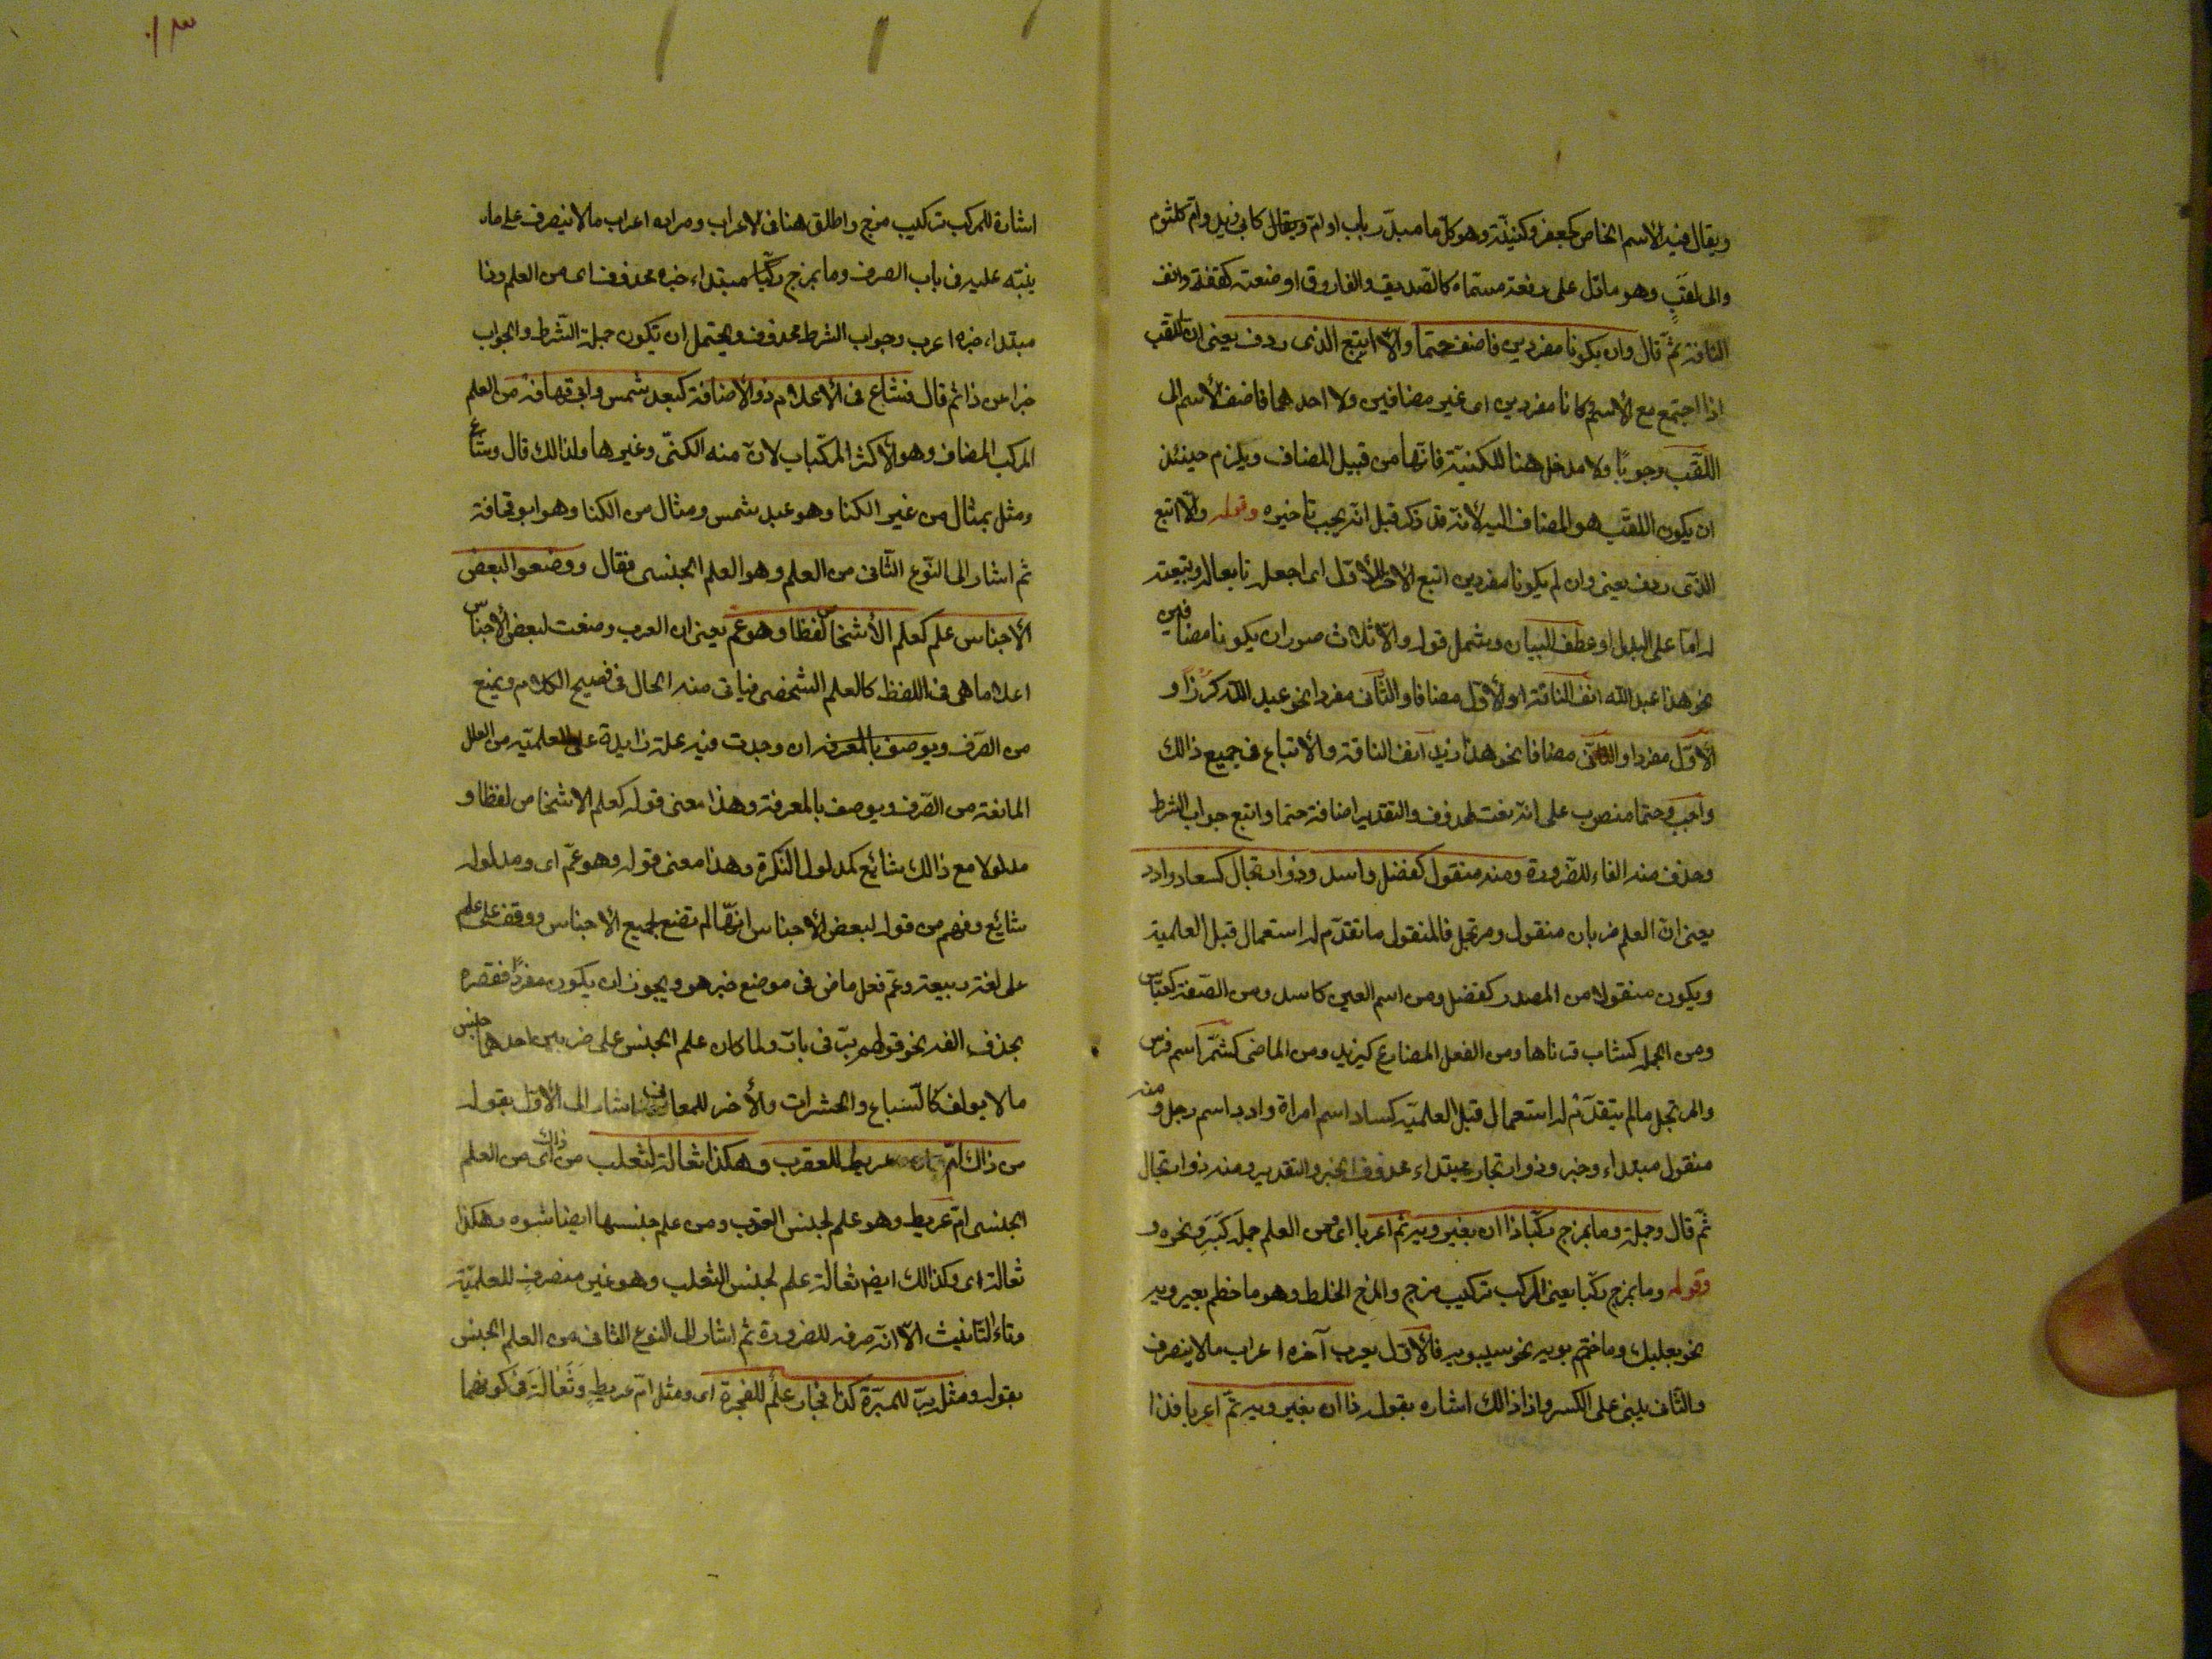 ويقال فيه الاسم الخاص كجعفر وكنية وهو كل ما صدر باب او ام ويقال كابي زيد وام كلثوم
والى لقب وهو ما دل على رفعة مسماه كالصديق والفاروق او ضعته كقفة وانف
الناقة ثم قال وان يكونا مفردين فاضف حتما والا اتبع الذى ردف يعنى ان اللقب
اذا اجتمع مع الاسم وكانا مفردين اى غير مضافين ولا احدهما فاضف الاسم الى
اللقب وجوبا ولا مدخل هنا للكنية فانها من قبيل المضاف ويلزم حينئذ
ان يكون اللقب هو المضاف اليه لانه قد ذكر قبل انه يجب تاخيره وقوله والا اتبع
الذى ردف يعنى وان لم يكونا مفردين اتبع الاخر للاول اى اجعله تابعا له وتبعيته
له اما على البدل او عطف البيان ويشمل قوله والا ثلاث صور ان يكونا مضافين
نحو هذا عبد الله انف الناقة او الاول مضافا والثانى مفردا نحو عبد الله كرز او
الاول مفردا والثانى مضافا نحو هذا زيد انف الناقة والاتباع فى جميع ذالك
واجب وحتما منصوب على انه نعت لمحذوف والتقدير اضافة حتما واتبع جواب الشرط
وحذف منه الفاء للضرورة ومنه منقول كفضل واسد وذو ارتجال كسعاد وادد
يعنى ان العلم ضربان منقول ومرتجل فالمنقول ما تقدم له استعمال قبل العلمية
ويكون منقولا من المصدر كفضل ومن اسم العين كاسد ومن الصفة كعباس
ومن الجملة كشاب قرناها ومن الفعل المضارع كيزيد ومن الماضى كشمر اسم فرس
والمرتجل ما لم يتقدم له استعمال قبل العلمية كسعاد اسم امراة وادد اسم رجل ومنه
منقول مبتداء وخبر وذو ارتجال مبتداء محذوف الخبر والتقدير ومنه ذو ارتجال
ثم قال وجملة وما بمزج ركبا ذا ان بغير ويه تم اعربا اى ومن العلم جملة ونحوه و
وقوله وما بمزج ركبا يعنى المركب تركيب مزج والمزج الخلط وهو ما ختم بغير ويه
نحو بعلبك وما ختم بويه نحو سيبويه فالاول يعرب آخره اعراب ما لا ينصرف
والثانى يبنى على الكسر واذا ذالك اشاره بقوله ذا ان بغير ويه تم اعربا فذا
١٣
اشارة للمركب تركيب مزج واطلق هنا فى الاعراب ومراده اعراب ما لا ينصرف على ما
ينبه عليه فى باب الصرف وما بمزج ركبا مبتداء خبره محذوف اى من العلم وذا
مبتداء خبره اعرب وجواب الشرط محذوف ويحتمل ان يكون جملة الشرط والجواب
خبرا عن ذا ثم قال وشاع فى الاعلام ذو الاضافة كعبد شمس وابى قحافة من العلم
المركب المضاف وهو الاكثر المركبات لان منه الكنى وغيرها ولذالك قال وشاع
ومثل بمثال من غير الكنا وهو عبد شمس ومثال من الكنا وهو ابو قحافة
ثم اشار الى النوع الثانى من العلم وهو العلم الجنسى فقال ووضعوا لبعض
الاجناس علم كعلم الاشخاص لفظا وهو عم يعنى ان العرب وضعت لبعض الاجناس
اعلاما هى فى اللفظ كالعلم الشخصى فياتى منه الحال فى فصيح الكلام ويمنع
من الصرف ويوصف بالمعرفه ان وجدت فيه علة زايدة على العلمية من العلل
المانعة من الصرف ويوصف بالمعرفة وهذا معنى قوله كعلم الاشخاص لفظا و
مدلولا مع ذالك شائع كمدلول النكرة وهذا معنى قوله وهو عم اى ومدلوله
شائع وفهم من قوله لبعض الاجناس انها لم تضع لجميع الاجناس ووقف على علم
على لغة ربيعة وعم فعل ماض فى موضع خبر هو ويجوز ان يكون مفردا فقصره
بحذف الفه نحو قولهم بر فى بار ولما كان علم الجنس على ضربين احدهما جنس
ما لا يولف كالسباع والحشرات والاخر للمعانى اشار الى الاول بقوله
من ذاك ام عريط للعقرب وهكذا ثعالة لثعلب من ذاك اى من العلم
الجنسى ام عريط وهو علم لجنس العقرب ومن علم جنسها ايضا شبوه وهكذا
ثعالة اى وكذالك ايض ثعالة علم لجنس الثعلب وهو غير منصرف للعلمية
وتاء التانيث الا انه صرفه للضرورة ثم اشار الى النوع الثانى من العلم الجنس
بقوله ومثله برة للمبرة كذا فجار علم للفجرة اى ومثل ام عريط وثعالة فى كونهما